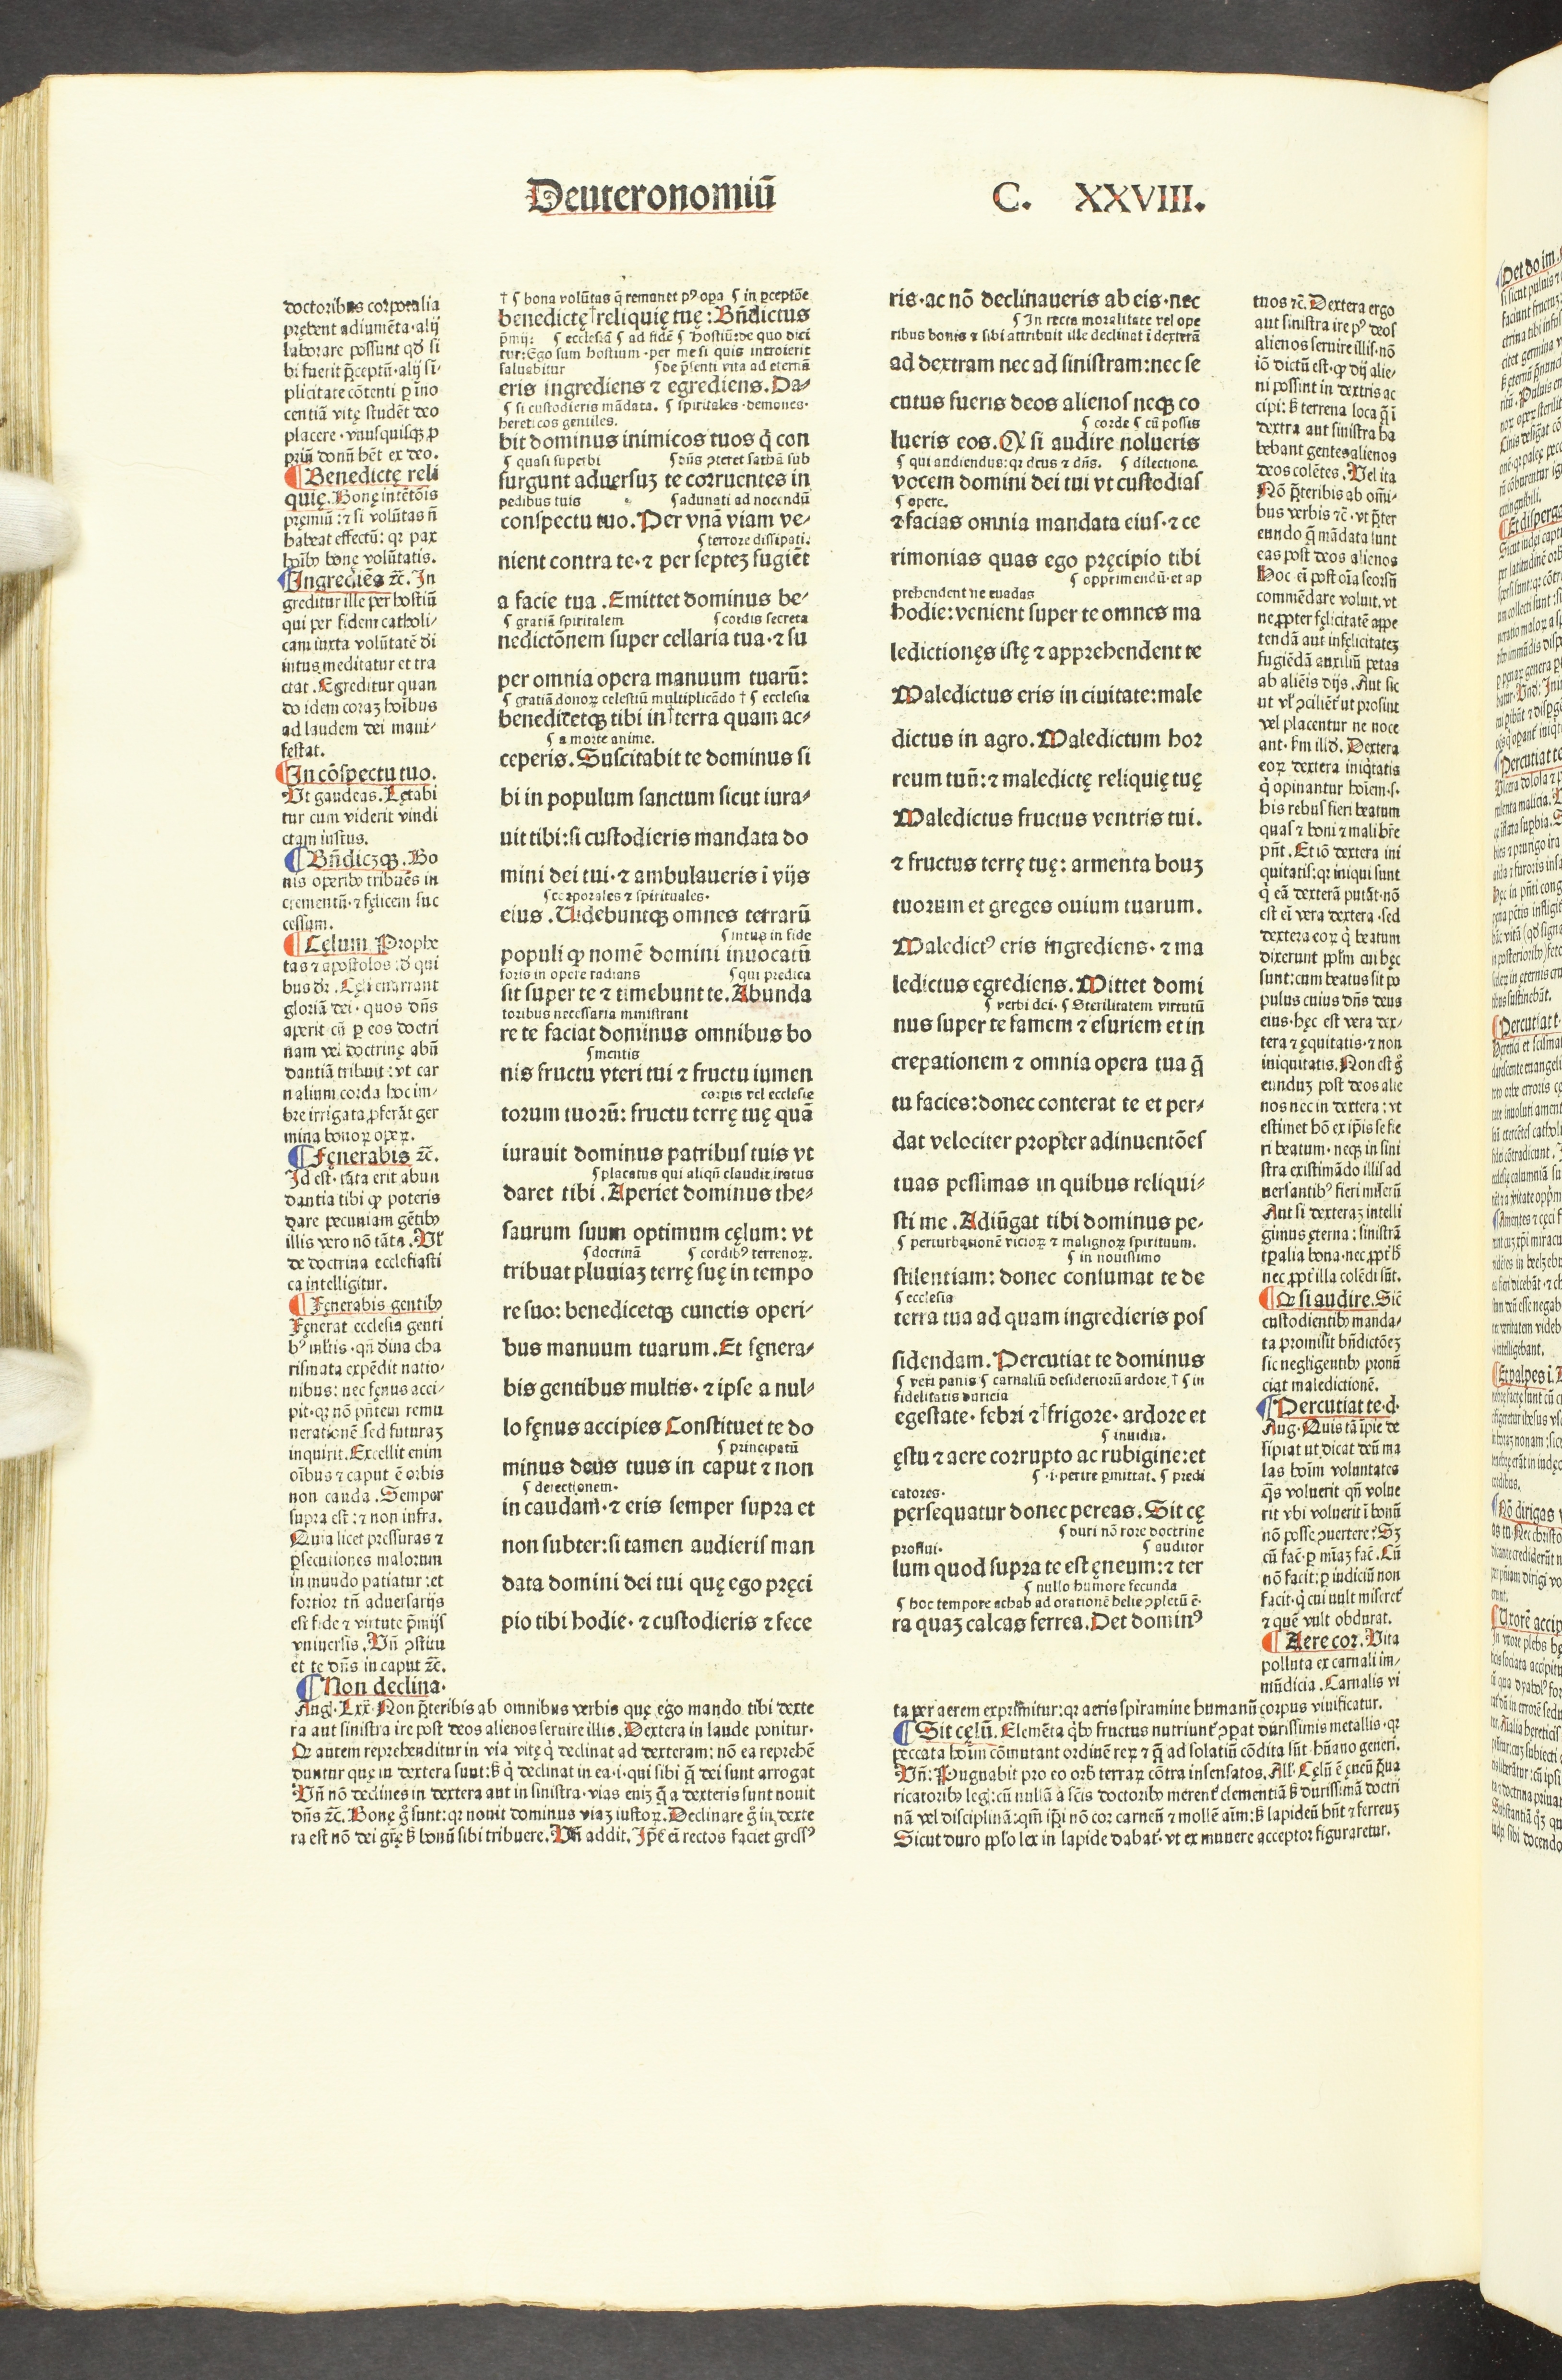 Deuteronomiū C. XXVIII.
doctoribus corporalia
prębent adiumēta·alij
laborare possunt qđ si
bi fuerit p̄ceptū·alij si-
plicitate cōtenti p īno
centiā vitę studēt deo
placere·vnusquisqꝫ ꝓ
priū donū hēt ex deo.
¶Benedictę reli
quię. Bonę intētōis
pręmiū: ⁊ si volūtas ñ
habeat effectū: qꝛ pax
hoībꝰ bonę volūtatis.
¶Ingrediēs ⁊c̄. In
greditur ille per hostiū
qui per fidem catholi-
cam iuxta volūtatē di
intus meditatur et tra
ctat. Egreditur quan
do idem coraꝫ hoibus
ad laudem dei mani-
festat.
¶In cōspectu tuo.
Ut gaudeas. Lętabi
tur cum viderit vindi
ctam iustus.
¶Bn̄dicꝫqꝫ. Bo
nis operibꝰ tribuēs in
crementū·⁊ fęlicem suc
cessum.
¶Cęlum Prophe
tas ⁊ apostolos: đ qui
bus dr̄. Cęli enarrant
gloriā dei·quos dn̄s
aperit cū p eos doctri
nam vel doctrinę abū
dantiā tribuit: vt car
nalium corda hoc im-
bre irrigata ꝓferāt ger
mina bonoꝝ opeꝝ.
¶Fęnerabis ⁊c̄.
Id est·tāta erit abun
dantia tibi ꝙ poteris
dare pecuniam gētibꝰ
illis vero nō tāta. Vl̄
de doctrina ecclesiasti
ca intelligitur.
¶Fęnerabis gentibꝰ
Fęnerat ecclesia genti
bꝰ mltis·qn̄ dīna cha
rismata expēdit natio-
nibus: nec fęnus acci-
pit·qꝛ nō pn̄tem remu
nerationē sed futuraꝫ
inquirit. Excellit enim
oībus ⁊ caput ē orbis
non cauda. Semper
supra est: ⁊ non infra.
Quia licet pressuras ⁊
ꝑsecutiones malorum
in mundo patiatur: et
fortior tn̄ aduersarijs
est fide ⁊ virtute p̄mijs
vniuersis. Vn̄ ꝯstitu
et te dn̄s in caput ⁊c̄.
¶Non declina·
Aug·Lxx·Non p̄teribis ab omnibus verbis quę ego mando tibi dexte
ra aut sinistra ire post deos alienos seruire illis. Dextera in laude ponitur·
Qꝛ autem reprehenditur in via vitę q̇ declinat ad dexteram: nō ea reprehē
duntur quę in dextera sunt: s̄ q̇ declinat in ea·i·qui sibi q̄ dei sunt arrogat
Vn̄ nō declines in dextera aut in sinistra·vias eniꝫ q̄ a dexteris sunt nouit
dn̄s ⁊c̄. Bonę g̊ sunt: qꝛ nouit dominus viaꝫ iustoꝝ. Declinare g̊ in dexte
ra est nō dei grę s̄ bonū sibi tribuere. Vn̄ addit. Ip̄e em̄ rectos faciet gressꝰ
† ¶ bona volūtas q̄ remanet pꝰ oꝑa ¶ in pceptōe
benedictę†reliquię tuę: Bn̄dictus
p̄mij: ¶ ecclesiā ¶ ad fidē ¶ Hostiū: de quo dici
tur: Ego sum hostium·per me si quis introierit
saluabitur ¶ de p̄senti vita ad eternā
eris ingrediens ⁊ egrediens. Da-
¶ si custodieris mādata. ¶ spiritales·demones·
hereticos gentiles.
bit dominus inimicos tuos q̇ con
¶ quasi superbi ¶ dn̄s ꝯteret sathā sub
surgunt aduersuꝫ te corruentes in
pedibus tuis ¶ adunati ad nocendū
conspectu tuo. Per vnā viam ve-
¶ terrore dissipati.
nient contra te·⁊ per septeꝫ fugiēt
a facie tua. Emittet dominus be-
¶ gratiā spiritalem ¶ cordis secreta
nedictōnem super cellaria tua·⁊ su
per omnia opera manuum tuarū:
¶ gratiā donoꝝ celestiū multiplicādo † ¶ ecclesia
benedicetqꝫ tibi in†terra quam ac-
¶ a morte anime.
ceperis. Suscitabit te dominus si
bi in populum sanctum sicut iura-
uit tibi: si custodieris mandata do
mini dei tui·⁊ ambulaueris ī vijs
¶ corporales ⁊ spirituales·
eius. Uidebuntqꝫ omnes terrarū
¶ intus in fide
populi ꝙ nomē domini inuocatū
foris in opere radians ¶ qui predica
sit super te ⁊ timebunt te. Abunda
toribus necessaria ministrant
re te faciat dominus omnibus bo
¶ mentis
nis fructu vteri tui ⁊ fructu iumen
corpis vel ecclesie
torum tuorū: fructu terrę tuę quā
iurauit dominus patribus tuis vt
¶ placatus qui aliqn̄ claudit iratus
daret tibi. Aperiet dominus the-
saurum suum optimum cęlum: vt
¶ doctrinā ¶ cordibꝰ terrenoꝝ.
tribuat pluuiaꝫ terrę suę in tempo
re suo: benedicetqꝫ cunctis operi-
bus manuum tuarum. Et fęnera-
bis gentibus multis·⁊ ipse a nul-
lo fęnus accipies Constituet te do
¶ principatū
minus deus tuus in caput ⁊ non
¶ deiectionem·
in caudam·⁊ eris semper supra et
non subter: si tamen audieris man
data domini dei tui quę ego pręci
pio tibi hodie·⁊ custodieris ⁊ fece
ris·ac nō declinaueris ab eis·nec
¶ In recta moralitate vel ope
ribus bonis ⁊ sibi attribuit ille declinat ī dexterā
ad dextram nec ad sinistram: nec se
cutus fueris deos alienos neqꝫ co
¶ corde ¶ cū possis
lueris eos. Qꝫ si audire nolueris
¶ qui audiendus: qꝛ deus ⁊ dn̄s. ¶ dilectione.
vocem domini dei tui vt custodias
¶ opere.
⁊ facias omnia mandata eius·⁊ ce
rimonias quas ego pręcipio tibi
¶ opprimendū·et ap
prehendent ne euadas
hodie: venient super te omnes ma
ledictionęs istę ⁊ apprehendent te
Maledictus eris in ciuitate: male
dictus in agro. Maledictum hor
reum tuū: ⁊ maledictę reliquię tuę
Maledictus fructus ventris tui.
⁊ fructus terrę tuę: armenta bouꝫ
tuorum et greges ouium tuarum.
Maledictꝰ eris ingrediens·⁊ ma
ledictus egrediens. Mittet domi
¶ verbi dei·¶ Sterilitatem virtutū
nus super te famem ⁊ esuriem et in
crepationem ⁊ omnia opera tua q̄
tu facies: donec conterat te et per-
dat velociter propter adinuentōes
tuas pessimas in quibus reliqui-
sti me. Adiūgat tibi dominus pe-
¶ perturbationē vicioꝝ ⁊ malignoꝝ spirituum.
¶ in nouissimo
stilentiam: donec consumat te de
¶ ecclesia
terra tua ad quam ingredieris pos
sidendam. Percutiat te dominus
¶ veri panis ¶ carnaliū desideriorū ardore † ¶ in
fidelitatis duricia
egestate·febri ⁊†frigore·ardore et
¶ inuidia.
ęstu ⁊ aere corrupto ac rubigine: et
¶ ·i·perire ꝑmittat. ¶ predi
catores·
persequatur donec pereas. Sit cę
¶ duri nō rore doctrine
proflui· ¶ auditor
lum quod supra te est ęneum: ⁊ ter
¶ nullo humore fecunda
¶ hoc tempore achab ad orationē helie ꝯpletū ē·
ra quaꝫ calcas ferrea. Det dominꝰ
tuos ⁊c̄. Dextera ergo
aut sinistra ire pꝰ deos
alienos seruire illis·nō
iō dictū est·ꝙ dij alie-
ni possint in dextris ac
cipi: s̄ terrena loca q̄ ī
dextra aut sinistra ha
bebant gentes alienos
deos colētes. Vel ita
Nō p̄teribis ab oīn̄i-
bus verbis ⁊c̄·vt p̄ter
eundo q̄ mādata sunt
eas post deos alienos
Hoc eī post oīa seorsū
commēdare voluit·vt
ne ꝓpter fęlicitatē appe
tendā aut infęlicitateꝫ
fugiēdā auxiliū petas
ab alieīs dijs. Aut sic
ut vl̄ ꝯcilient̄ ut prosint
vel placentur ne noce
ant·s̄m illđ. Dextera
eoꝝ dextera iniq̇tatis
q̇ opinantur hoīem·s·
his rebus fieri beatum
quas ⁊ boni ⁊ mali hr̄e
pn̄t. Et iō dextera ini
quitatis: qꝛ iniqui sunt
q̇ eā dexterā putāt·nō
est eī vera dextera·sed
dextera eoꝝ q̇ beatum
dixerunt ppl̄m cui hęc
sunt: cum beatus sit po
pulus cuius dn̄s deus
eius·hęc est vera dex-
tera ⁊ ęquitatis·⁊ non
iniquitatis. Non est g̊
eunduꝫ post deos alie
nos nec in dextera: vt
estimet hō ex ip̄is se fie
ri beatum·neqꝫ in sini
stra existimādo illis ad
uersantibꝰ fieri miserū
Aut si dexteraꝫ intelli
gimus ęterna: sinistrā
tp̄alia bona·nec ꝓpt̄ h̄
nec ꝓpt̄ illa colēdi sūt.
¶Qꝛ si audire. Sic̄
custodientibꝰ manda-
ta promisit bn̄dictōeꝫ
sic negligentibꝰ pronū
ciat maledictionē.
¶Percutiat te·d·
Aug·Quis tā īpie de
sipiat ut dicat deū ma
las hoīm voluntates
q̄s voluerit qn̄ volue
rit vbi voluerit ī bonū
nō posse ꝯuertere? Sꝫ
cū fac̄·p mīaꝫ fac̄. Cū
nō facit: p iudiciū non
facit·q̇ cui uult miseret̄
⁊ quē vult obdurat.
¶Aere cor. Vita
polluta ex carnali im-
mūdicia. Carnalis vi
ta per aerem exprimitur: qꝛ aeris spiramine humanū corpus viuificatur.
¶Sit cęlū. Elemēta q̇bꝰ fructus nutriunt̄ ꝯpat durissimis metallis·qꝛ
peccata hoīm cōmutant ordinē reꝝ ⁊ q̄ ad solatiū cōdita sūt·hn̄ano generi.
Vn̄: Pugnabit pro eo orb̄ terraꝝ cōtra insensatos. All·Cęlū ē ęneū p̄ua
ricatoribꝰ leḡ: cū nullā a sc̄is doctoribꝰ merent̄ clementiā s̄ durissimā doctri
nā vel disciplinā: qm̄ ip̄i nō cor carneū ⁊ mollē aīm: s̄ lapideū hn̄t ⁊ ferreuꝫ
Sicut duro ppl̄o lex in lapide dabat̄·vt ex munere acceptor figuraretur.